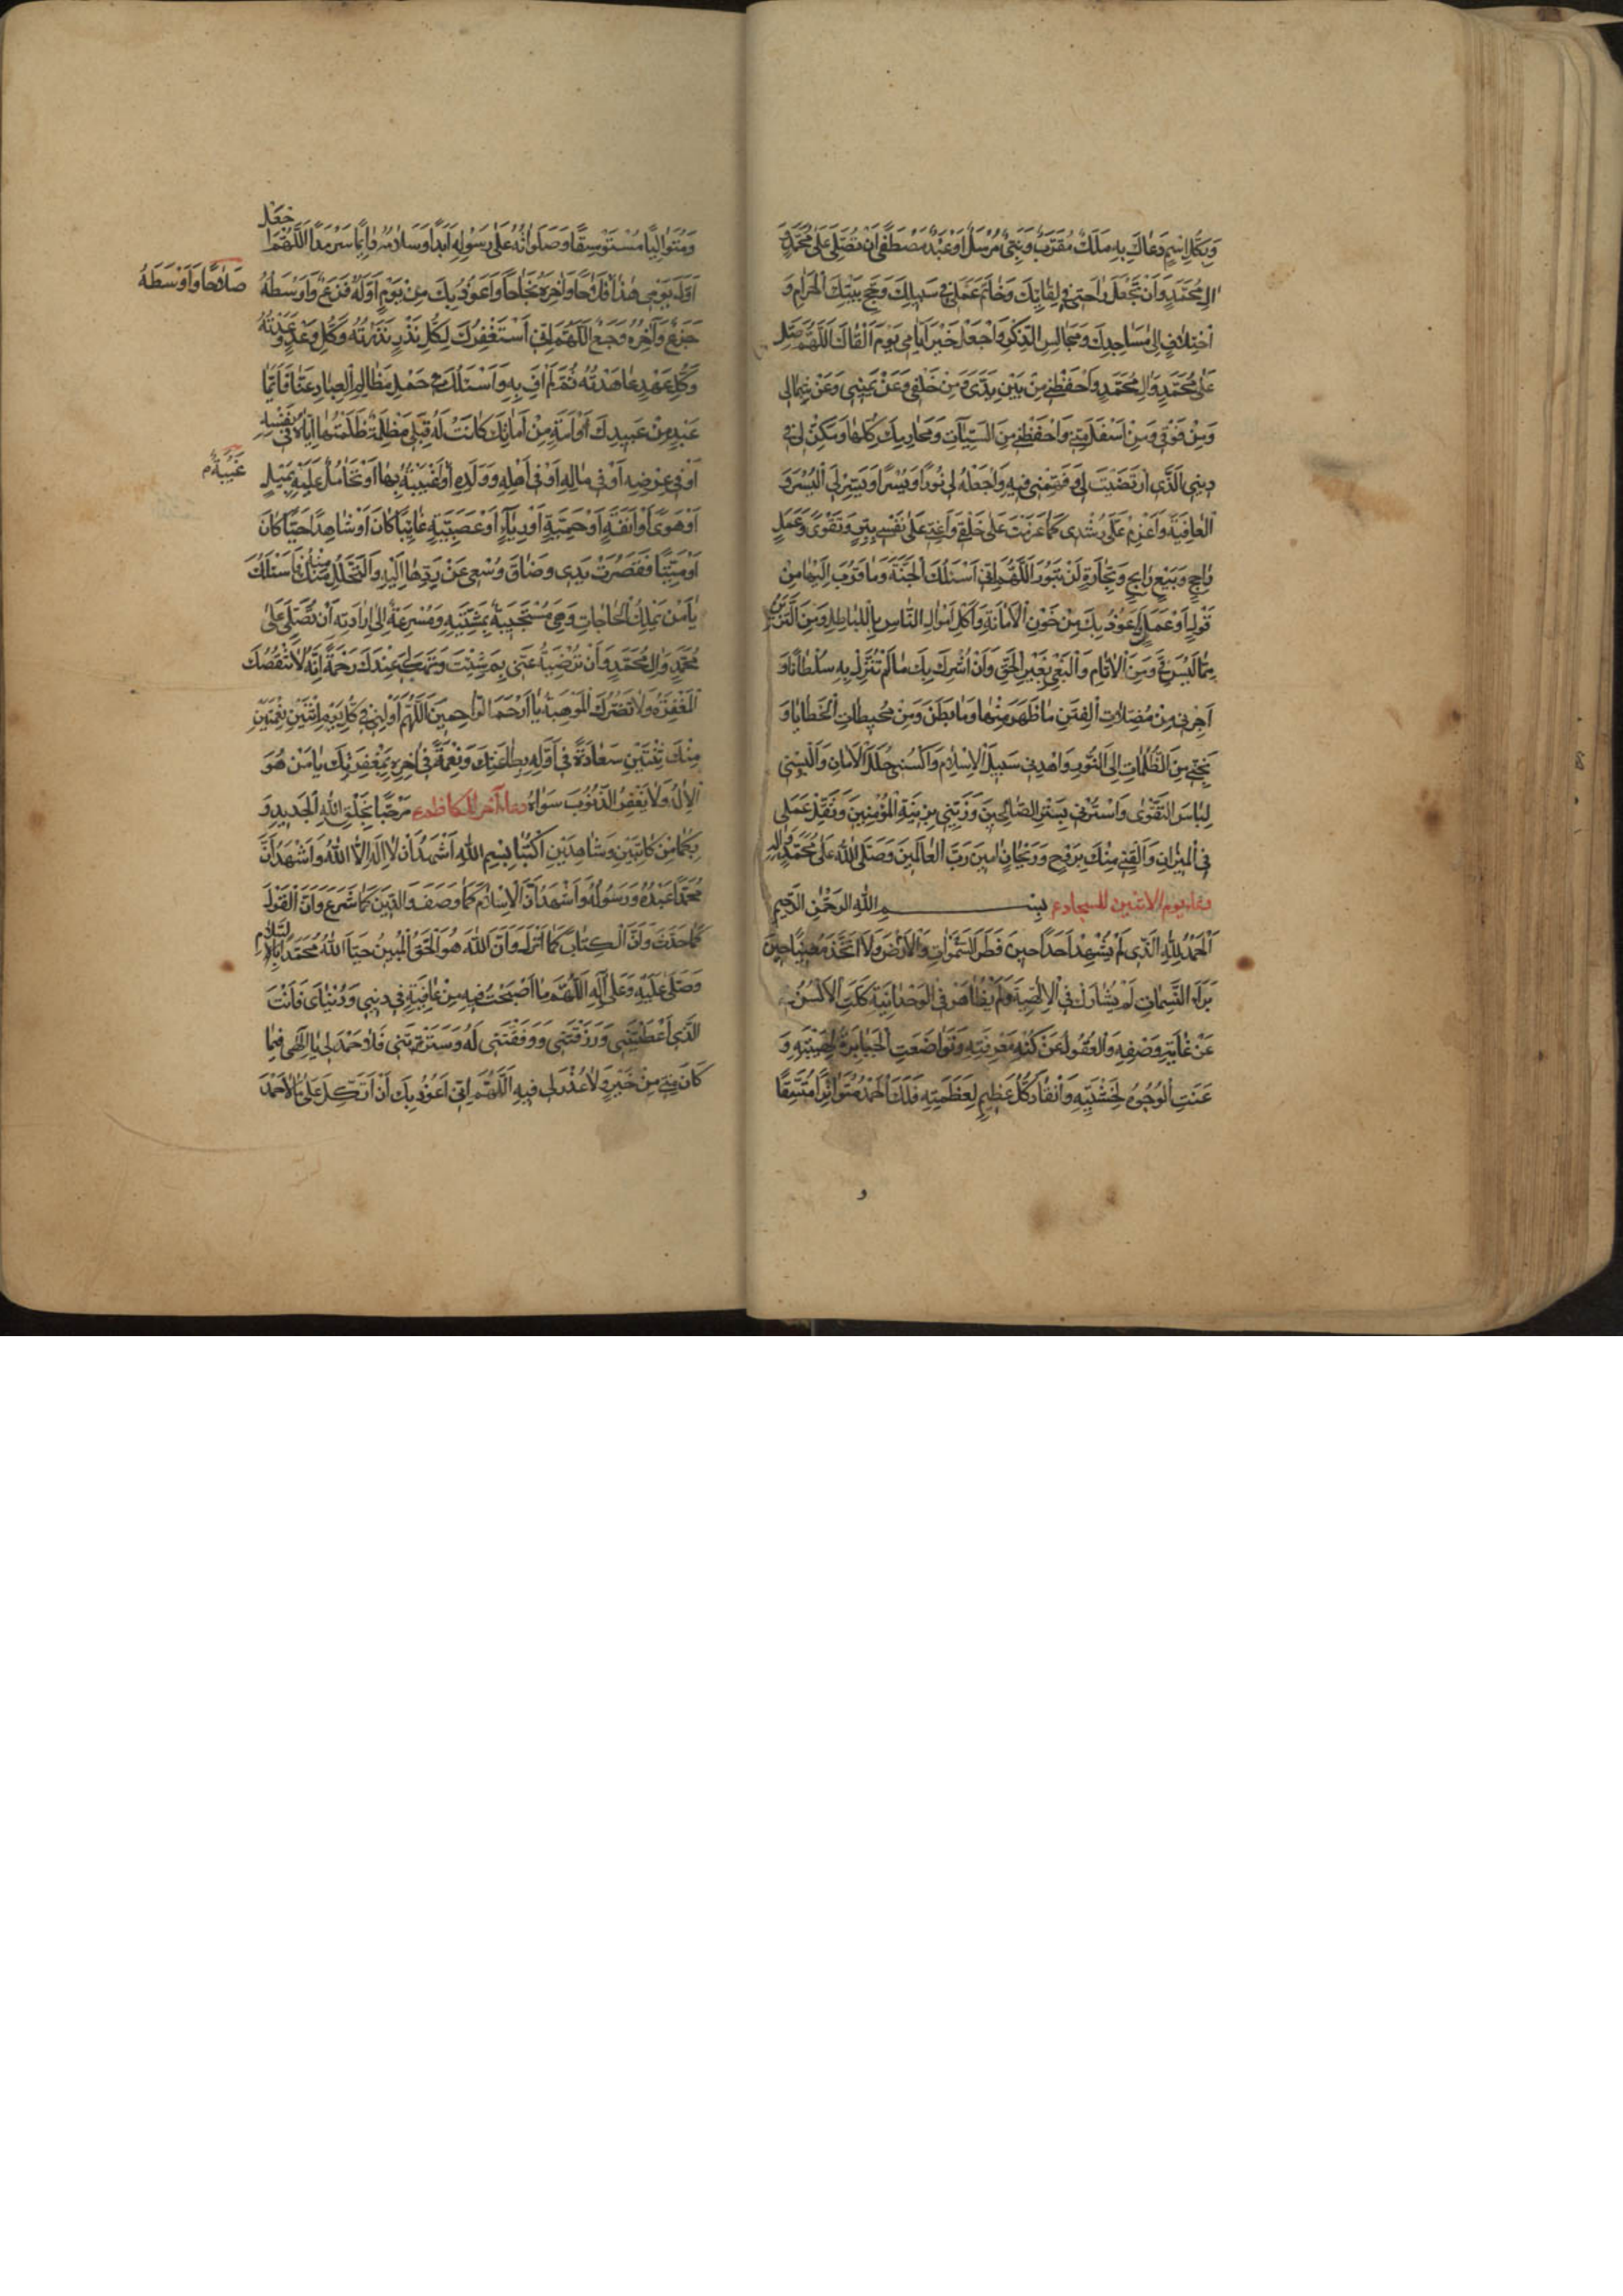 وَبِكُلِّ اسْمٍ دَعَاكَ بِهِ مَلَكٌ مُقَرَّبٌ وَنَبِيٌّ مُرْسَلٌ اَوْ عَبْدٌ مُصْطَفًى اَنْ تُصَلِّيَ عَلَى مُحَمَّدٍ وَ
الِ مُحَمَّدٍ وَاَنْ تَجْعَلَ رَاحَتِي فِي لِقَائِكَ وَخَاتَمَ عَمَلِي فِي سَبِيلِكَ وَحَجِّ بَيْتِكَ الْحَرَامِ وَ
اخْتِلَافٍ اِلَى مَسَاجِدِكَ وَمَجَالِسِ الذِّكْرِ وَاجْعَلْ خَيْرَ اَيَّامِي يَوْمَ اَلْقَاكَ اَللّٰهُمَّ صَلِّ
عَلَى مُحَمَّدٍ وَالِ مُحَمَّدٍ وَاحْفَظْنِي مِنْ بَيْنِ يَدَيَّ وَمِنْ خَلْفِي وَعَنْ يَمِينِي وَعَنْ شِمَالِي
وَمِنْ فَوْقِي وَمِنْ اَسْفَلَ مِنِّي وَاحْفَظْنِي مِنَ السَّيِّئَاتِ وَمَحَارِمِكَ كُلِّهَا وَمَكِّنْ لِي فِي
دِينِيَ الَّذِي ارْتَضَيْتَ لِي وَفَهِّمْنِي فِيهِ وَاجْعَلْهُ لِي نُورًا وَيُسْرًا وَيَسِّرْ لِيَ الْيُسْرَ وَ
الْعَافِيَةَ وَاعْزِمْ عَلَى رُشْدِي كَمَا عَزَمْتَ عَلَى خَلْقِي وَاَعِنِّي عَلَى نَفْسِي بِبِرٍّ وَتَقْوًى وَعَمَلٍ
رَاجِحٍ وَبَيْعٍ رَابِحٍ وَتِجَارَةٍ لَنْ تَبُورَ اَللّٰهُمَّ اِنِّي اَسْئَلُكَ الْجَنَّةَ وَمَا قَرَّبَ اِلَيْهَا مِنْ
قَوْلٍ اَوْ عَمَلٍ وَاَعُوذُ بِكَ مِنْ خَوْنِ الْاَمَانَةِ وَاَكْلِ اَمْوَالِ النَّاسِ بِالْبَاطِلِ وَمِنَ التَّزَيُّنِ
بِمَا لَيْسَ فِيَّ وَمِنَ الْاثَامِ وَالْبَغْيِ بِغَيْرِ الْحَقِّ وَاَنْ اُشْرِكَ بِكَ مَا لَمْ تُنَزِّلْ بِهِ سُلْطَانًا وَ
اَجِرْنِي مِنْ مُضِلَّاتِ الْفِتَنِ مَا ظَهَرَ مِنْهَا وَمَا بَطَنَ وَمِنْ مُحِيطَاتِ الْخَطَايَا وَ
نَجِّنِي مِنَ الظُّلُمَاتِ اِلَى النُّورِ وَاهْدِنِي سَبِيلَ الْاِسْلَامِ وَاكْسُنِي حُلَلَ الْاَمَانِ وَاَلْبِسْنِي
لِبَاسَ التَّقْوَى وَاسْتُرْنِي بِسَتْرِ الصَّالِحِينَ وَزَيِّنِّي بِزِينَةِ الْمُؤْمِنِينَ وَثَقِّلْ عَمَلِي
فِي الْمِيزَانِ وَالْقَنِي مِنْكَ بِرَوْحٍ وَرَيْحَانٍ امِينَ رَبَّ الْعَالَمِينَ وَصَلَّى اللهُ عَلَى مُحَمَّدٍ وَالِهِ
دعاء يوم الاثنين للسجاد ع بِسْمِ اللهِ الرَّحْمٰنِ الرَّحِيمِ
اَلْحَمْدُ لِلّٰهِ الَّذِي لَمْ يُشْهِدْ اَحَدًا حِينَ فَطَرَ السَّمٰوَاتِ وَالْاَرْضَ وَلَا اتَّخَذَ مُعِينًا حِينَ
بَرَاَ النَّسَمَاتِ لَمْ يُشَارَكْ فِي الْاِلٰهِيَّةِ وَلَمْ يُظَاهَرْ فِي الْوَحْدَانِيَّةِ كَلَّتِ الْاَلْسُنُ
عَنْ غَايَةِ وَصْفِهِ وَالْعُقُولُ عَنْ كُنْهِ مَعْرِفَتِهِ وَتَوَاضَعَتِ الْجَبَابِرَةُ لِهَيْبَتِهِ وَ
عَنَتِ الْوُجُوهُ لِخَشْيَتِهِ وَانْقَادَ كُلُّ عَظِيمٍ لِعَظَمَتِهِ فَلَكَ الْحَمْدُ مُتَوَاتِرًا مُتَّسِقًا
و
وَمُتَوَالِيًا مُسْتَوْسِقًا وَصَلَوَاتُهُ عَلَى رَسُولِهِ اَبَدًا وَسَلَامُهُ دَائِمًا سَرْمَدًا اَللّٰهُمَّ اجْعَلْ
اَوَّلَ يَوْمِي هٰذَا فَلَاحًا وَاخِرَهُ نَجَاحًا وَاَعُوذُ بِكَ مِنْ يَوْمٍ اَوَّلُهُ فَزَعٌ وَاَوْسَطُهُ
صَلَاحًا وَاَوْسَطَهُ
جَزَعٌ وَآخِرُهُ وَجَعٌ اَللّٰهُمَّ اِنِّي اَسْتَغْفِرُكَ لِكُلِّ نَذْرٍ نَذَرْتُهُ وَكُلِّ وَعْدٍ وَعَدْتُهُ
وَكُلِّ عَهْدٍ عَاهَدْتُهُ ثُمَّ لَمْ اَفِ بِهِ وَاَسْئَلُكَ فِي حَمْلِ مَظَالِمِ الْعِبَادِ عَنَّا فَاَيُّمَا
عَبْدٍ مِنْ عَبِيدِكَ اَوْ اَمَةٍ مِنْ اِمَائِكَ كَانَتْ لَهُ قِبَلِي مَظْلِمَةٌ ظَلَمْتُهَا اِيَّاهُ فِي نَفْسِهِ
اَوْ فِي عِرْضِهِ اَوْ فِي مَالِهِ اَوْ فِي اَهْلِهِ وَوَلَدِهِ اَوْ غِيبَةٌ اغْتَبْتُهُ بِهَا اَوْ تَحَامُلٌ عَلَيْهِ بِمَيْلٍ
اَوْ هَوًى اَوْ اَنَفَةٍ اَوْ حَمِيَّةٍ اَوْ رِيَاءٍ اَوْ عَصَبِيَّةٍ غَائِبًا كَانَ اَوْ شَاهِدًا حَيًّا كَانَ
اَوْ مَيِّتًا فَقَصُرَتْ يَدِي وَضَاقَ وُسْعِي عَنْ رَدِّهَا اِلَيْهِ وَالتَّحَلُّلِ مِنْهُ فَاَسْئَلُكَ
يَا مَنْ يَمْلِكُ الْحَاجَاتِ وَهِيَ مُسْتَجِيبَةٌ بِمَشِيَّتِهِ وَمُسْرِعَةٌ اِلَى اِرَادَتِهِ اَنْ تُصَلِّيَ عَلَى
مُحَمَّدٍ وَالِ مُحَمَّدٍ وَاَنْ تُرْضِيَهُ عَنِّي بِمَ شِئْتَ وَتَهَبَ لِي مِنْ عِنْدِكَ رَحْمَةً اِنَّهُ لَا تَنْقُصُكَ
الْمَغْفِرَةُ وَلَا تَضُرُّكَ الْمَوْهِبَةُ يَا اَرْحَمَ الرَّاحِمِينَ اَللّٰهُمَّ اَوْلِنِي فِي كُلِّ يَوْمِ اثْنَيْنِ نِعْمَتَيْنِ
مِنْكَ ثِنْتَيْنِ سَعَادَةً فِي اَوَّلِهِ بِطَاعَتِكَ وَنِعْمَةً فِي اخِرِهِ بِمَغْفِرَتِكَ يَا مَنْ هُوَ
الْاِلٰهُ وَلَا يَغْفِرُ الذُّنُوبَ سِوَاهُ دعاء آخر للكاظم ع مَرْحَبًا بِخَلْقِ اللهِ الْجَدِيدِ وَ
بِكُمَا مِنْ كَاتِبَيْنِ وَشَاهِدَيْنِ اكْتُبَا بِسْمِ اللهِ اَشْهَدُ اَنْ لَا اِلٰهَ اِلَّا اللهُ وَاَشْهَدُ اَنَّ
مُحَمَّدًا عَبْدُهُ وَرَسُولُهُ وَاَشْهَدُ اَنَّ الْاِسْلَامَ كَمَا وَصَفَ وَالدِّينَ كَمَا شَرَعَ وَاَنَّ الْقَوْلَ
كَمَا حَدَّثَ وَاَنَّ الْكِتَابَ كَمَا اَنْزَلَ وَاَنَّ اللهَ هُوَ الْحَقُّ الْمُبِينُ حَيَّا اللهُ مُحَمَّدًا بِالسَّلَامِ
وَصَلَّى عَلَيْهِ وَعَلَى آلِهِ اَللّٰهُمَّ مَا اَصْبَحْتُ فِيهِ مِنْ عَافِيَةٍ فِي دِينِي وَدُنْيَايَ فَاَنْتَ
الَّذِي اَعْطَيْتَنِي وَرَزَقْتَنِي وَوَفَّقْتَنِي لَهُ وَسَتَرْتَنِي فَلَا حَمْدَ لِي يَا اِلٰهِي فِيمَا
كَانَ مِنِّي مِنْ خَيْرٍ وَلَا عُذْرَ لِي فِيهِ اَللّٰهُمَّ اِنِّي اَعُوذُ بِكَ اَنْ اَتَّكِلَ عَلَى مَا لَا حَمْدَ